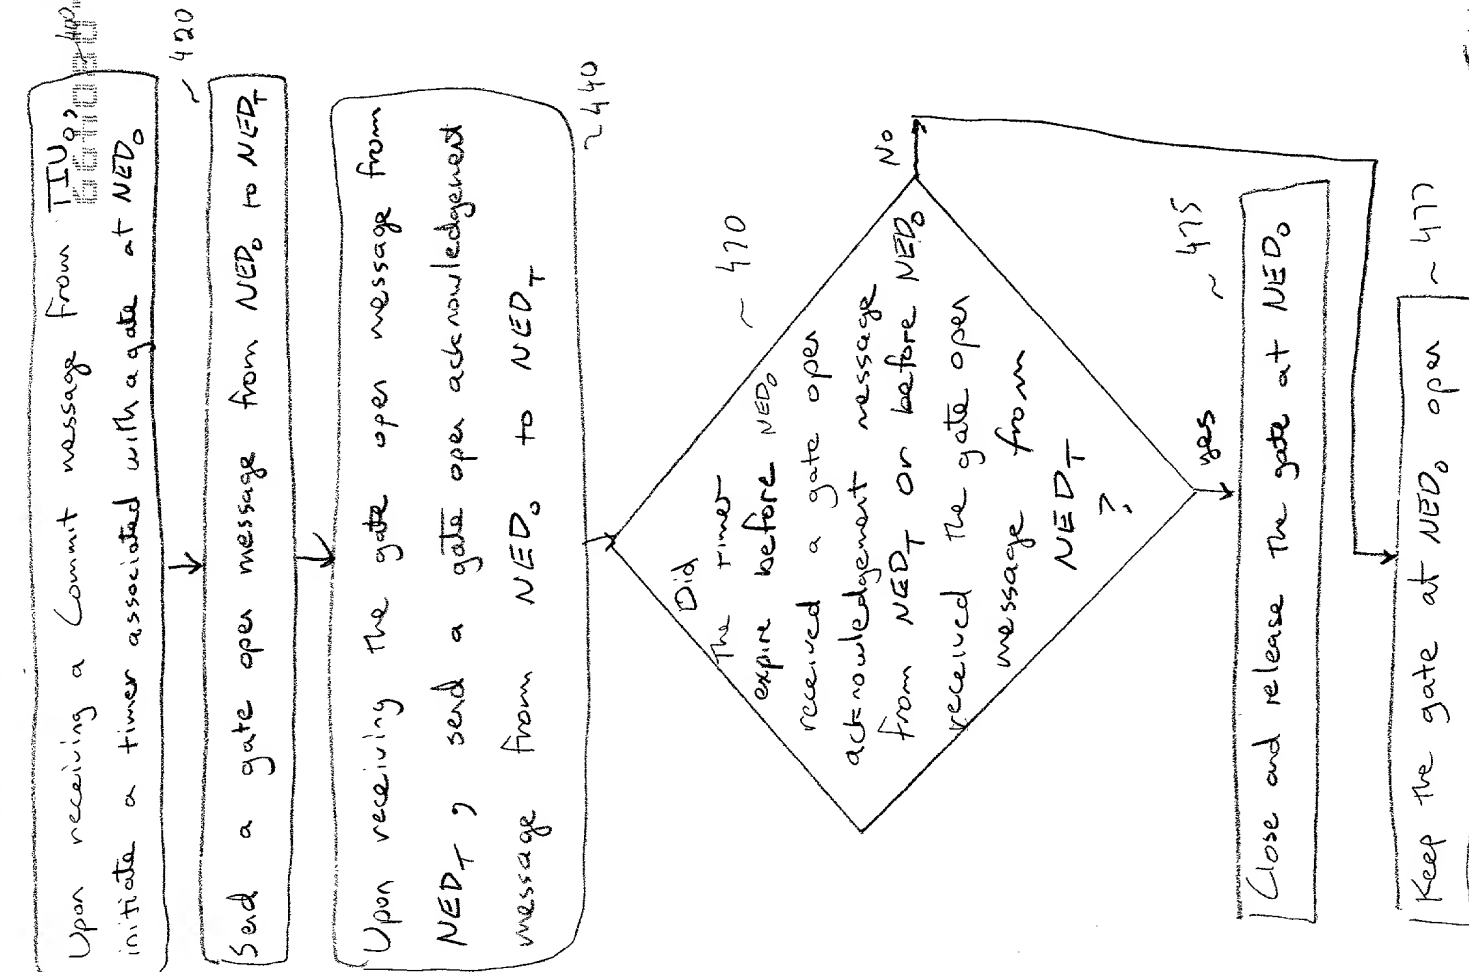 Upon receiving a Commit message from TIU₀,
initiate a timer associated with a gate at NED₀
~ 400
~ 420
Send a gate open message from NED₀ to NED_T
Upon receiving the gate open message from
NED_T, send a gate open acknowledgement
message from NED₀ to NED_T
~ 440
Did
the timer
expire before NED₀
received a gate open
acknowledgement message
from NED_T or before NED₀
received the gate open
message from
NED_T
?
~ 470
No
yes
~ 475
Close and release the gate at NED₀
Keep the gate at NED₀ open
~ 477